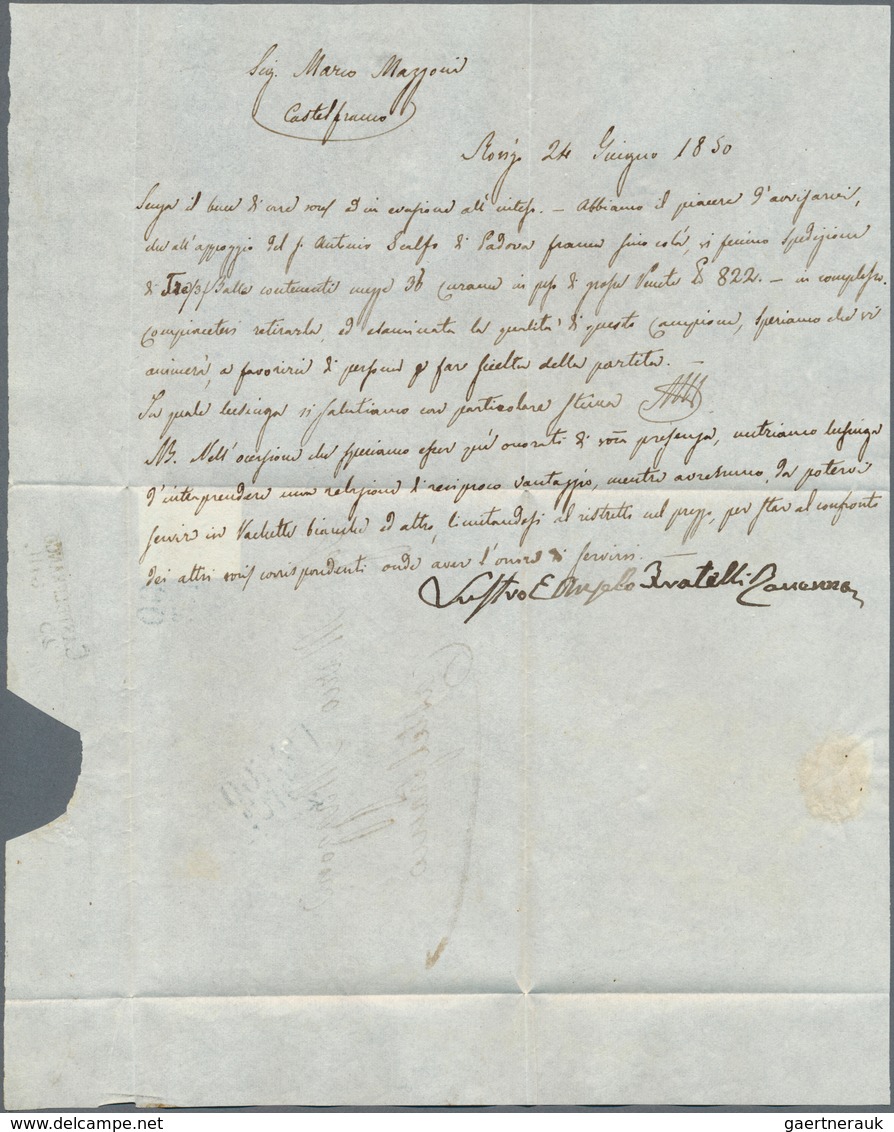 Sig. Marco Mazzoni
Castelfranco
Rovigo 24 Giugno 1850
Senza il bene di care vostre ed in evasione all' inteso. — Abbiamo il piacere d'avvisarvi,
che all'appoggio del S. Antonio Scalfo di Padova franca fino colà, vi fecimo spedizione
di Tre Balle contenenti mezze 36 curame in peso di grosse Venete 822. — in complesso.
Compiacetevi ritirarla, ed esaminata la qualità di questo campione, speriamo che vi
animerà, a favorirci di persona p far scielta della partita. —
In quale lusinga vi salutiamo con particolare stima
NB. Nell' occasione che speriamo esser più onorati di vostra presenza, nutriamo lusinga
d'intraprendere una relazione di reciproco vantaggio, mentre avressimo da potervi
servir in Vachette bianche ed altro, limitandosi al ristretto nel prezzo, per star al confronto
dei altri vostri corrispondenti onde aver l'onore di servirvi. —
Lustro E Angelo Fratelli Ravenna
gaertnerauk